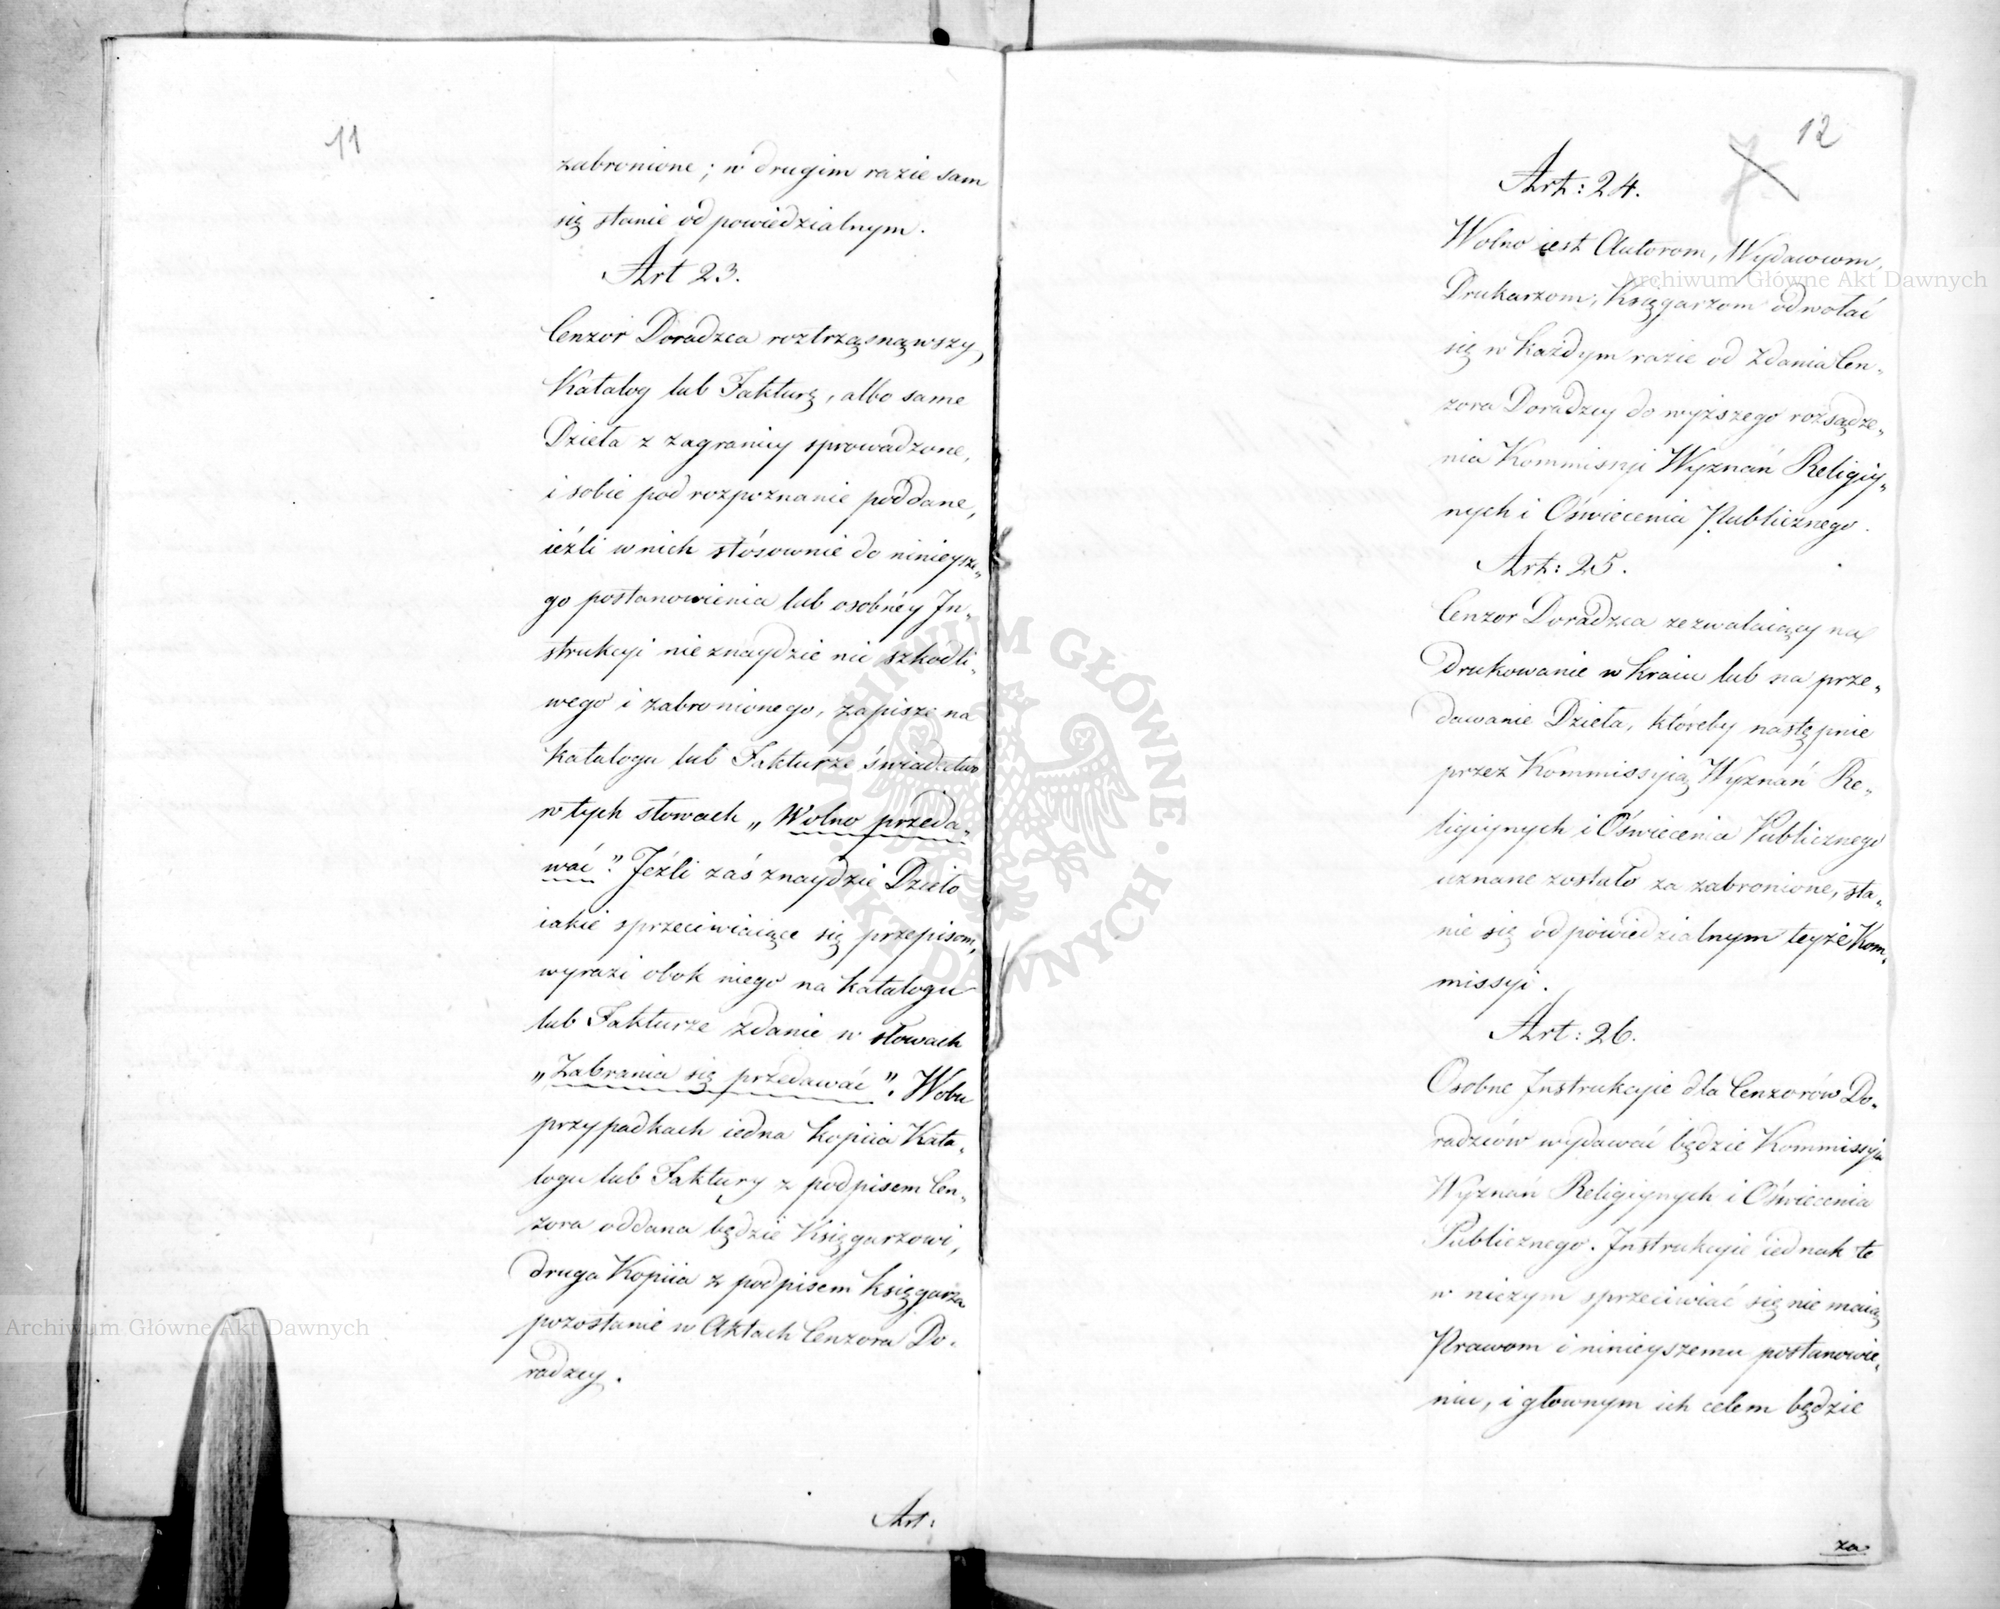 11
zabronione; w drugim razie sam
się stanie odpowiedzialnym.
Art 23.
Cenzor Doradzca roztrząsnąwszy,
Katalog lub Fakturę, albo same
Dzieła z zagranicy sprowadzone,
i sobie pod rozpoznanie poddane,
ieźli w nich stósownie do ninieysze„
go postanowienia lub osobnéy In„
strukcyi nie znaydzie nic szkodli„
wego i zabronionego, zapisze na
katalogu lub Fakturze świadectwo
w tych słowach „Wolno przeda„
wać". Jeźli zaś znaydzie Dzieło
iakie sprzeciwiaiące się przepisom,
wyrazi obok niego na katalogu
lub Fakturze zdanie w słowach
„Zabrania się przedawać". W obu
przypadkach iedna kopiia Kata„
logu lub Faktury z podpisem Cen„
zora oddana będzie Księgarzowi,
druga Kopiia z podpisem księgarza
pozostanie w Aktach Cenzora Do„
radzcy.
Art:
12
Art: 24.
Wolno iest Autorom, Wydawcom,
Drukarzom, Księgarzom odwołać
się w każdym razie od Zdania Cen„
zora Doradzcy do wyższego rozsądze„
nia Kommissyi Wyznań Religiy„
nych i Oświecenia Publicznego.
Art: 25.
Cenzor Doradzca zezwalaiący na
drukowanie w kraiu lub na prze„
dawanie Dzieła, któreby następnie
przez Kommissyią Wyznań Re„
ligiynych i Oświecenia Publicznego
uznane zostało za zabronione, sta„
nie się odpowiedzialnym teyże Kom„
missyi.
Art: 26.
Osobne Instrukcyie dla Cenzorów Do„
radzców wydawać będzie Kommissyia
Wyznań Religiynych i Oświecenia
Publicznego. Instrukcyie iednak te
w niczym sprzeciwiać się nie maią
Prawom i ninieyszemu postanowie„
niu, i głownym ich celem będzie
za
Archiwum Główne Akt Dawnych
Archiwum Główne Akt Dawnych
ARCHIWUM GŁÓWNE · AKT DAWNYCH ·